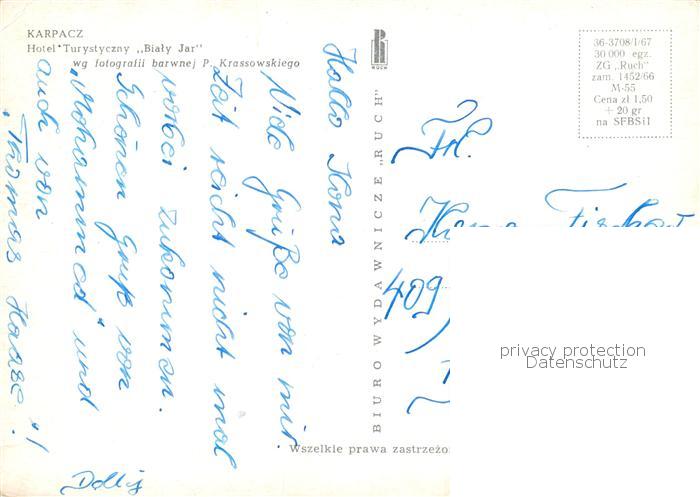 KARPACZ
Hotel Turystyczny „Biały Jar"
wg fotografii barwnej P. Krassowskiego
RUCH
36-3708/I/67
30 000 egz.
ZG „Ruch"
zam. 1452/66
M-55
Cena zł 1,50
+ 20 gr
na SFBSiI
BIURO WYDAWNICZE „RUCH"
Hallo Ilona
Viele Grüße von mir.
Zeit reicht nicht mal
vorbei zukommen.
Schönen Gruß von
„Mohammed" und
auch von
„Thomas Hasse"!
Frl.
409
Wszelkie prawa zastrzeżo
privacy protection
Datenschutz